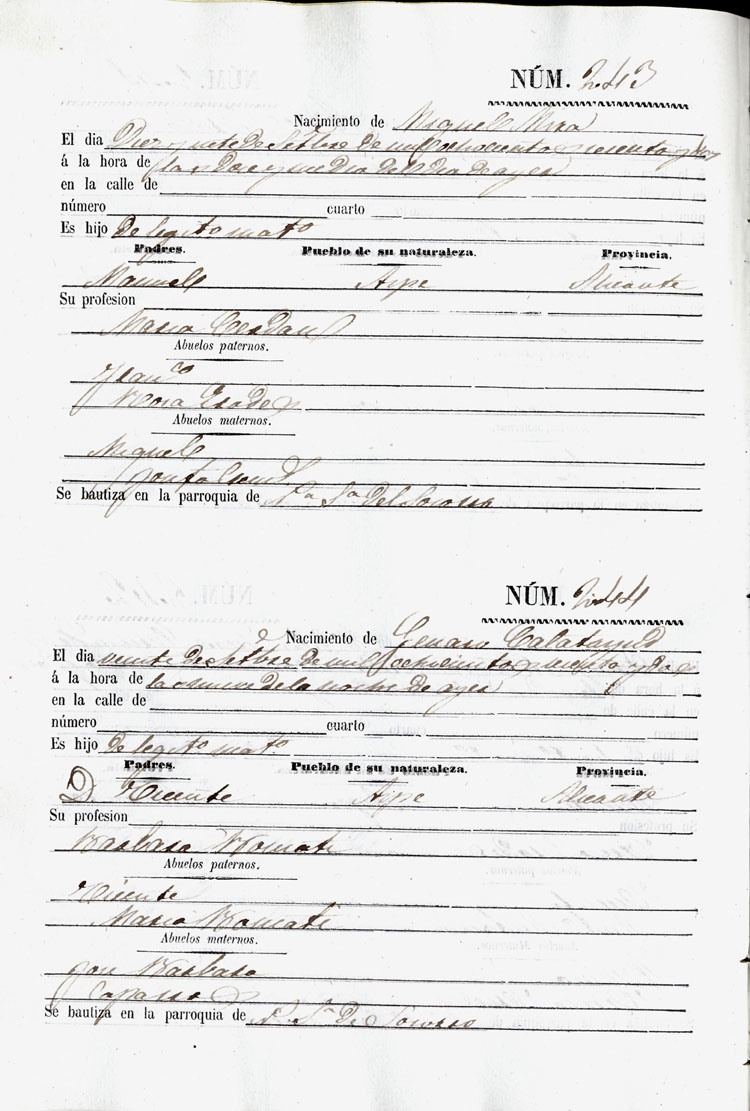 NÚM. 243
Nacimiento de Miguel Mira
El dia Diez y siete de Setbre de mil ochocientos sesenta y dos
á la hora de las doce y media del dia de ayer
en la calle de
número cuarto
Es hijo de legito mato
Padres. Pueblo de su naturaleza. Provincia.
Manuel Aspe Alicante
Su profesion
Maria Cerdan
Abuelos paternos.
Franco
Rosa
Abuelos maternos.
Miguel
Se bautiza en la parroquia de Na Sa del Socorro
NÚM. 244
Nacimiento de Genaro Calatayud
El dia veinte de Setbre de mil ochocientos sesenta y dos
á la hora de las nueve de la noche de ayer
en la calle de
número cuarto
Es hijo de legito mato
Padres. Pueblo de su naturaleza. Provincia.
D. Vicente Aspe Alicante
Su profesion
Barbara
Abuelos paternos.
Vicente
Maria
Abuelos maternos.
Jose Barbara
Se bautiza en la parroquia de N. Sra de Socorro